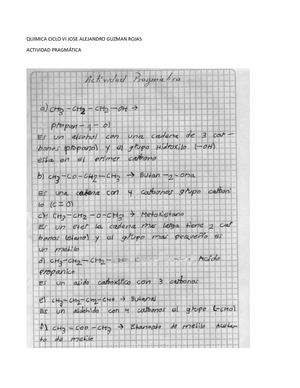 QUIMICA CICLO VI JOSE ALEJANDRO GUZMAN ROJAS
ACTIVIDAD PRAGMÁTICA
Actividad Pragmatica
a) CH3-CH2-CH2-OH →
propan-1-ol
Es un alcohol con una cadena de 3 car-
bonos (propano) y el grupo Hidroxilo (-OH)
esta en el primer carbono
b) CH3-CO-CH2-CH3 → Butan-2-ona
Es una cadena con 4 carbonos grupo carboni
lo (C=O)
c) CH3-CH2-O-CH3 → Metoxietano
Es un eter la cadena mas larga tiene 2 car
bonos (etano) y el grupo mas pequeño es
un metilo
d) CH3-CH2- Acido
propanico
Es un acido carboxilico con 3 carbonos
e) CH3-CH2-CH2-CHO → Butanal
Es un aldehido con 4 carbonos el grupo (-CHO)
f) CH3-COO-CH3 → Etanoato de metilo Aceta-
to de metilo